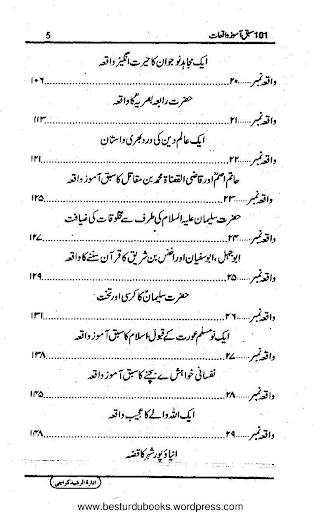 101 سبق آموز واقعات 5
ایک مجاہد نوجوان کا حیرت انگیز واقعہ
واقعہ نمبر......۲۰......۱۰۶
حضرت رابعہ بصریہؒ کا واقعہ
واقعہ نمبر......۲۱......۱۱۳
ایک عالم دین کی درد بھری داستان
واقعہ نمبر......۲۲......۱۲۱
حاتم اصمؒ اور قاضی القضاۃ محمد بن مقاتل کا سبق آموز واقعہ
واقعہ نمبر......۲۳......۱۲۵
حضرت سلیمان علیہ السلام کی طرف سے مخلوقات کی ضیافت
واقعہ نمبر......۲۴......۱۲۷
ابوجہل، ابوسفیان اور اخنس بن شریق کا قرآن سننے کا واقعہ
واقعہ نمبر......۲۵......۱۲۹
حضرت سلیمانؑ کا کرسی اور تخت
واقعہ نمبر......۲۶......۱۳۱
ایک نو مسلم عورت کے قبول اسلام کا سبق آموز واقعہ
واقعہ نمبر......۲۷......۱۳۸
نفسانی خواہش سے بچنے کا سبق آموز واقعہ
واقعہ نمبر......۲۸......۱۴۵
ایک اللہ والے کا عجیب واقعہ
واقعہ نمبر......۲۹......۱۴۸
انیاؤ پور شہر کا قصہ
ادارۃ الرشید کراچی
www.besturdubooks.wordpress.com